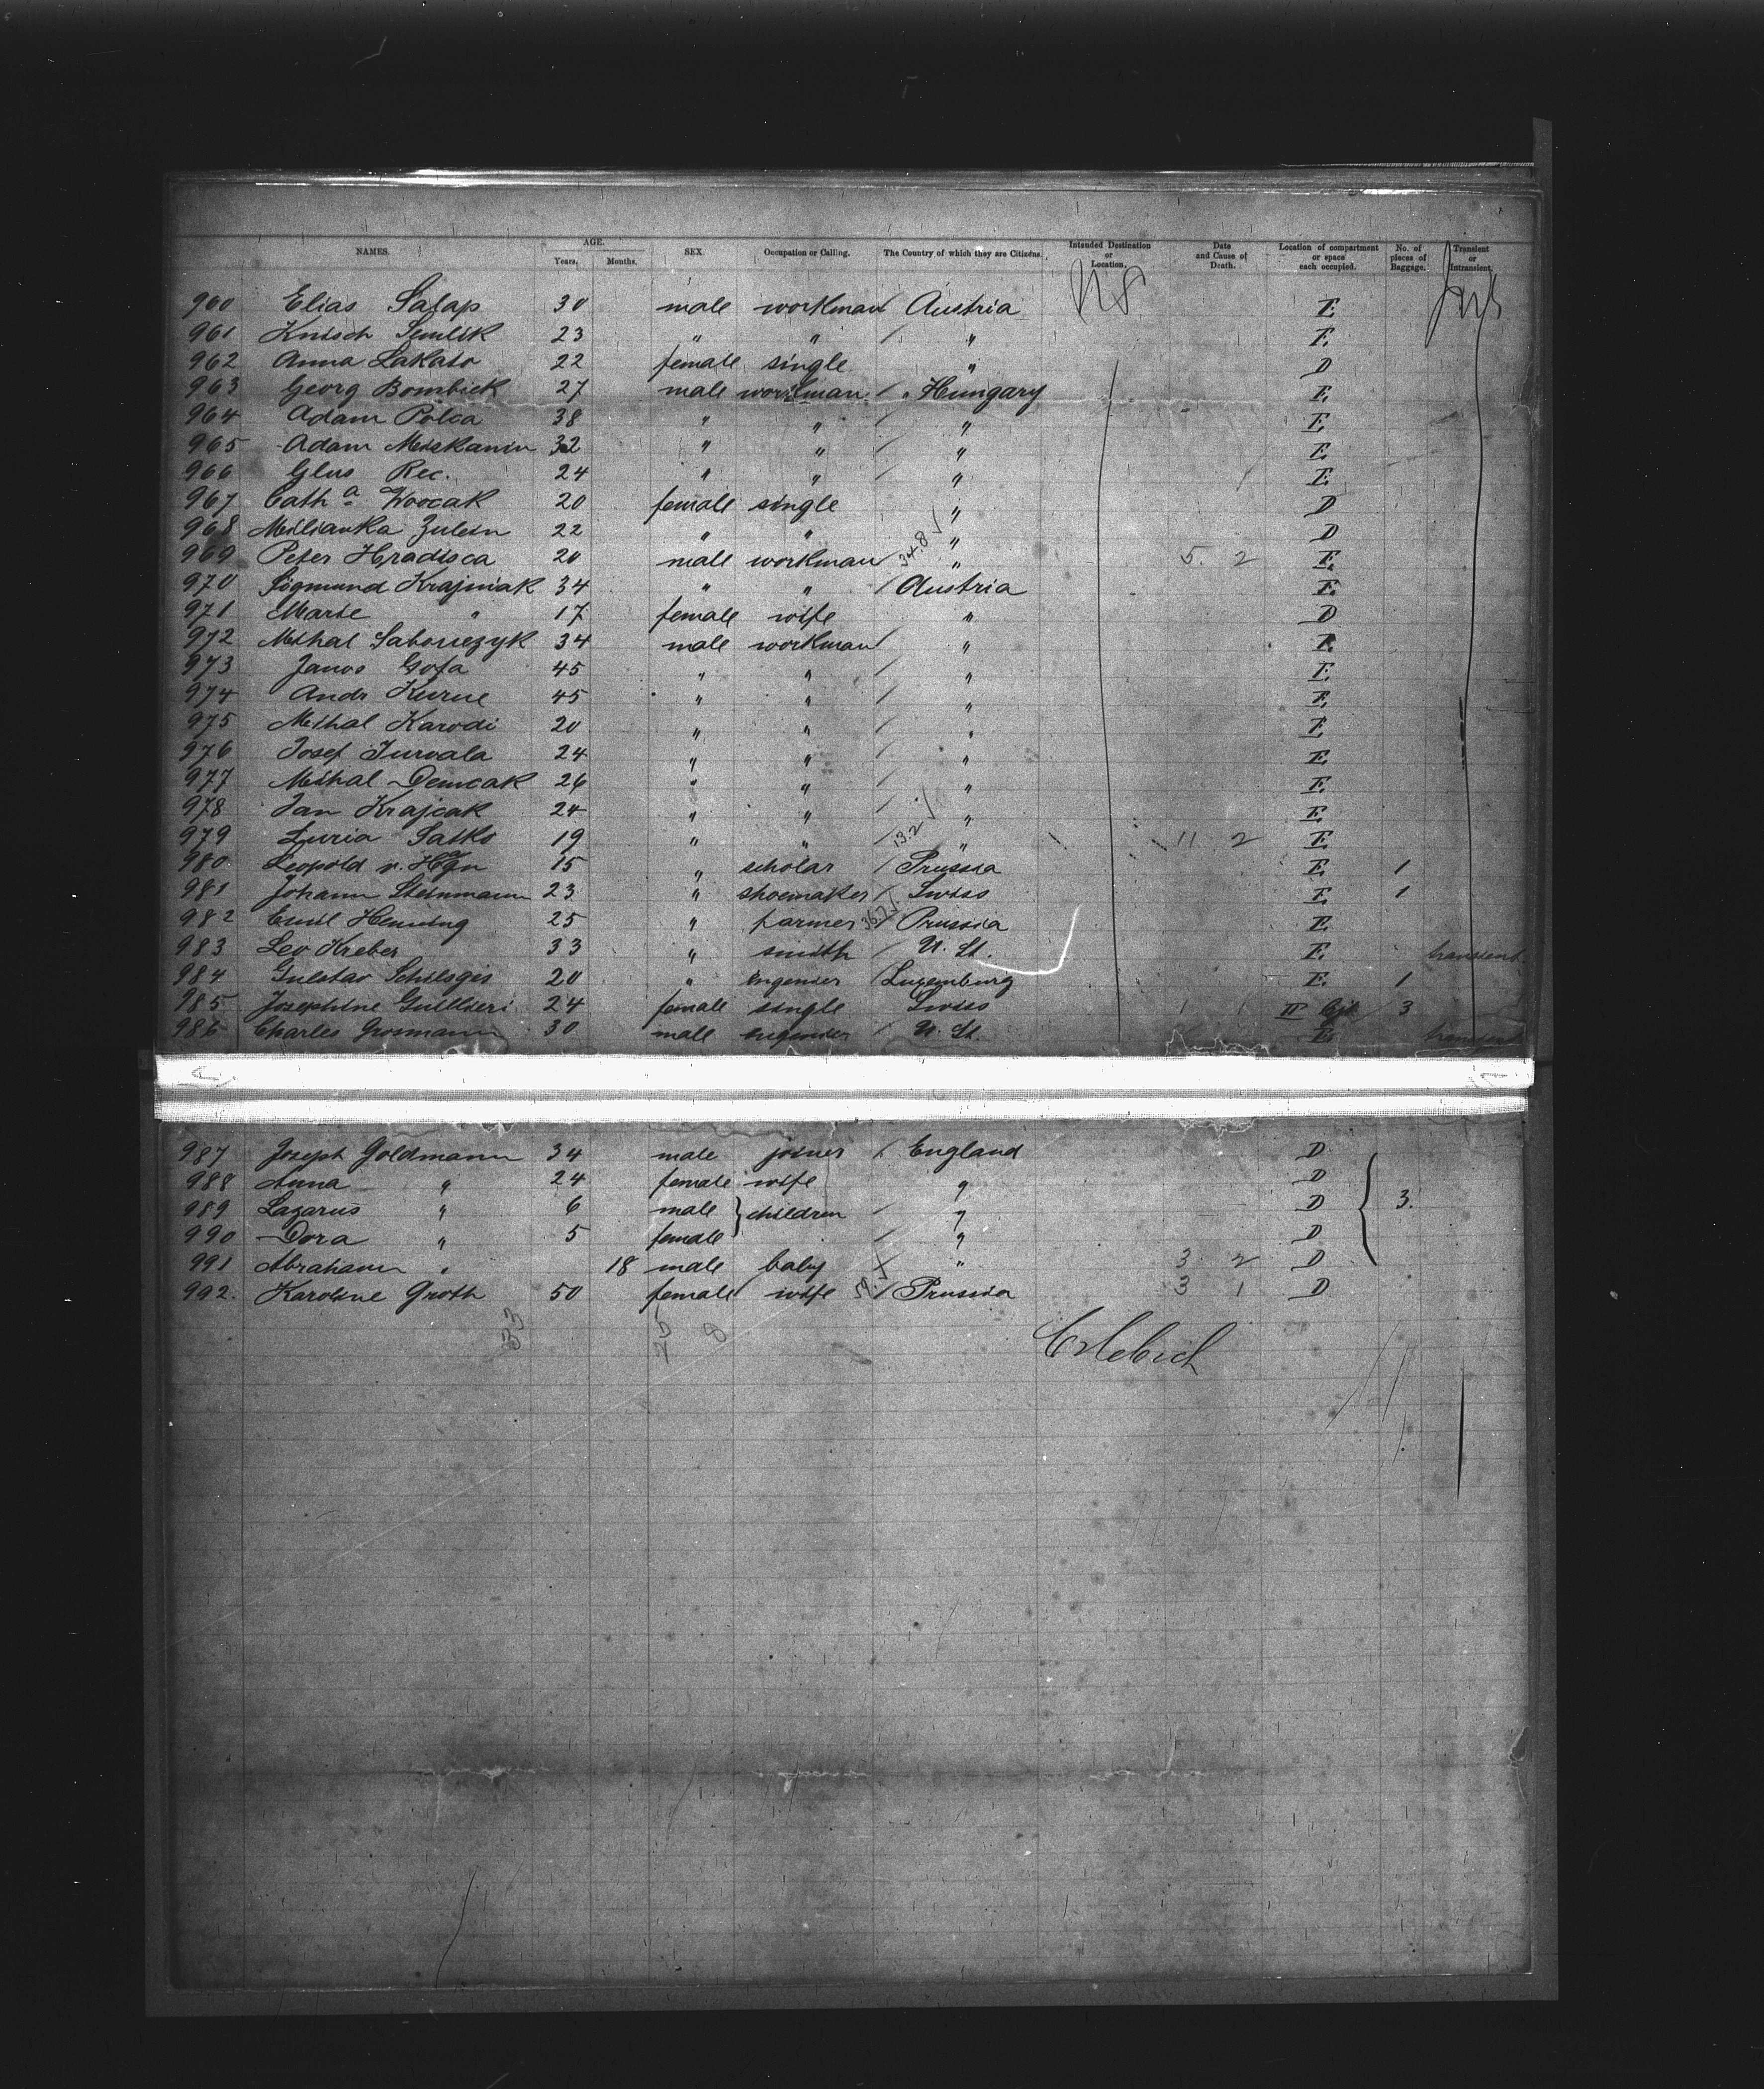 NAMES. AGE. Years. Months. SEX. Occupation or Calling. The Country of which they are Citizens. Intended Destination or Location. Date and Cause of Death. Location of compartment or space each occupied. No. of pieces of Baggage. Transient or Intransient.
960 Elias Salap 30 male workman Austria E.
961 Knisch Semlik 23 " " " E.
962 Anna Lakato 22 female single " D
963 Georg Bombick 27 male workman / " Hungary E.
964 Adam Polca 38 " " / " E.
965 Adam Miskanin 32 " " / " E.
966 Glus Rec. 24 " " / " E.
967 Cath a Woocak 20 female single " D
968 Milianka Zulein 22 " " " D
969 Peter Hradisca 20 male workman 348 " 5. 2 E.
970 Sigmund Krajniak 34 " " / Austria E.
971 Marie " 17 female wife " D
972 Mihal Saboriczyk 34 male workman / " E.
973 Janos Gofa 45 " " / " E.
974 Andr Kurne 45 " " / " E.
975 Mihal Karodi 20 " " / " E.
976 Josef Turvala 24 " " / " E.
977 Mihal Demcak 26 " " / " E.
978 Jan Krajcak 24 " " / " E.
979 Luria Satko 19 " " 132 " 11 2 E.
980 Leopold v. 15 " scholar / Prussia E. 1
981 Johann Steinmann 23 " shoemaker / Swiss E. 1
982 Emil Henning 25 " farmer / Prussia E.
983 Leo Kreber 33 " smith / U. St. E. transient
984 Gustav Schilsgis 20 " engenier / Luxemburg E. 1
985 Josephine Guillieri 24 female single Swiss II Caj. 3
986 Charles Grosmann 30 male engenier / U. St. E. transient
987 Joseph Goldmann 34 male joiner / England D
988 Anna " 24 female wife " D
989 Lazarus " 6 male } children / " D 3.
990 Dora " 5 female / " D
991 Abraham " 18 male baby " 3. 2 D
992. Karoline Groth 50 female wife / Prussia 3 1 D